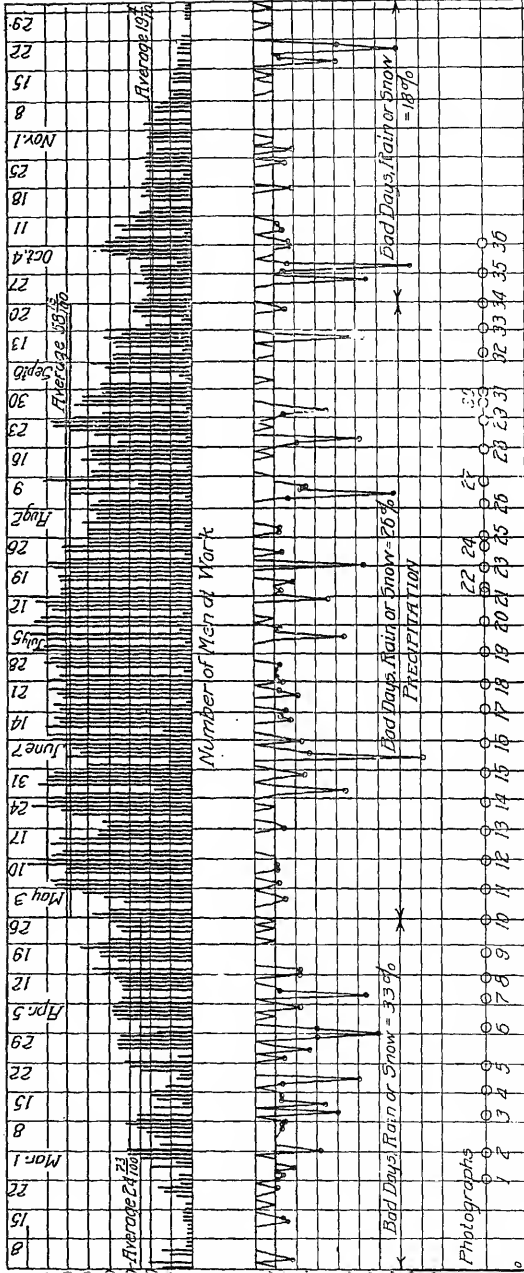 8 15 22 Mar. 1 8 15 22 29 Apr. 5 12 19 26 May 3 10 17 24 31 June 7 14 21 28 July 5 12 19 26 Aug 2 9 16 23 30 Sept 6 13 20 27 Oct. 4 11 18 25 Nov. 1 8 15 22 29
Average 24 23/100
Average 58
Average 19
Number of Men at Work
Bad Days, Rain or Snow = 33%
Bad Days, Rain or Snow = 26%
Bad Days, Rain or Snow
= 18%
PRECIPITATION
Photographs
1 2 3 4 5 6 7 8 9 10 11 12 13 14 15 16 17 18 19 20 21 22 23 24 25 26 27 28 29 31 32 33 34 35 36